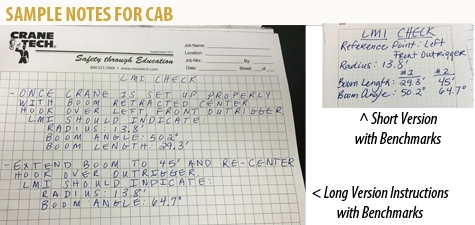 SAMPLE NOTES FOR CAB
CRANE TECH.
Safety through Education
Job Name:
Location:
Job No.: By
Date: Sheet of
LMI CHECK
- ONCE CRANE IS SET UP PROPERLY
WITH BOOM RETRACTED CENTER
HOOK OVER LEFT FRONT OUTRIGGER
LMI SHOULD INDICATE:
RADIUS: 13.8'
BOOM ANGLE: 50.2°
BOOM LENGTH: 29.3'
- EXTEND BOOM TO 45' AND RE-CENTER
HOOK OVER OUTRIGGER.
LMI SHOULD INDICATE:
RADIUS: 13.8'
BOOM ANGLE: 64.7°
LMI CHECK
Reference Point: Left
Front Outrigger
Radius: 13.8'
#1 #2
Boom Length: 29.3' 45'
Boom Angle: 50.2° 64.7°
^ Short Version
with Benchmarks
< Long Version Instructions
with Benchmarks